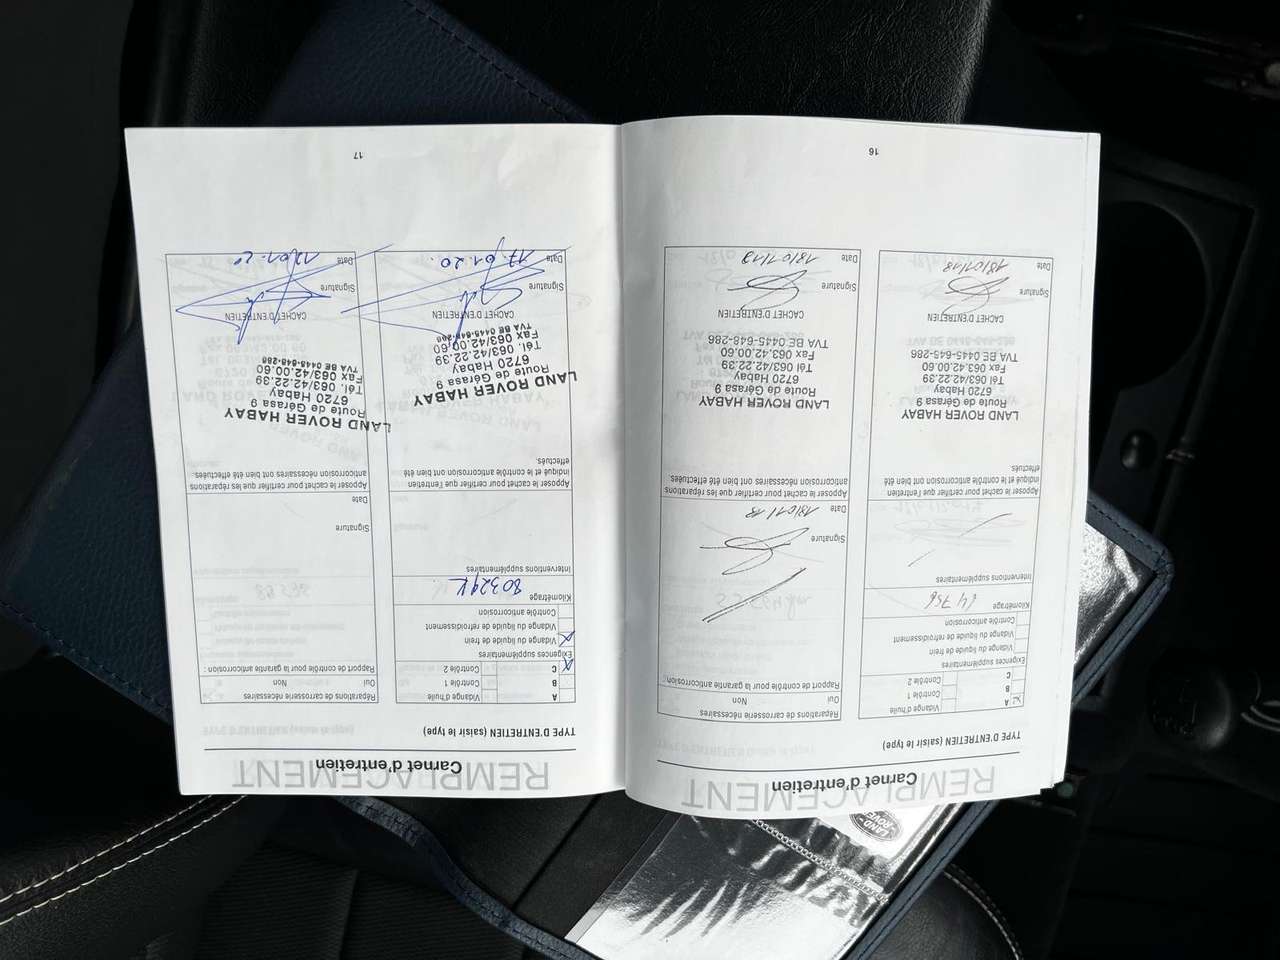 REMPLACEMENT
Carnet d'entretien
TYPE D'ENTRETIEN (saisir le type)
A Vidange d'huile
B Contrôle 1
C Contrôle 2
Exigences supplémentaires
Vidange du liquide de frein
Vidange du liquide de refroidissement
Contrôle anticorrosion
Kilométrage 64 756
Interventions supplémentaires
Apposer le cachet pour certifier que l'entretien
indiqué et le contrôle anticorrosion ont bien été
effectués.
LAND ROVER HABAY
Route de Gérasa 9
6720 Habay
Tél 063/42.22.39
Fax 063/42.00.60
TVA BE 0445-648-286
CACHET D'ENTRETIEN
Signature
Date 18/01/18
Réparations de carrosserie nécessaires
Oui Non
Rapport de contrôle pour la garantie anticorrosion
Signature
Date 18/01/18
Apposer le cachet pour certifier que les réparations
anticorrosion nécessaires ont bien été effectuées.
LAND ROVER HABAY
Route de Gérasa 9
6720 Habay
Tél 063/42.22.39
Fax 063/42.00.60
TVA BE 0445-648-286
CACHET D'ENTRETIEN
Signature
Date 18/01/18
16
REMPLACEMENT
Carnet d'entretien
TYPE D'ENTRETIEN (saisir le type)
A Vidange d'huile
B Contrôle 1
C Contrôle 2
Exigences supplémentaires
Vidange du liquide de frein
Vidange du liquide de refroidissement
Contrôle anticorrosion
Kilométrage 80329K
Interventions supplémentaires
Apposer le cachet pour certifier que l'entretien
indiqué et le contrôle anticorrosion ont bien été
effectués.
LAND ROVER HABAY
Route de Gérasa 9
6720 Habay
Tél. 063/42.22.39
Fax 063/42.00.60
TVA BE 0445-648-286
CACHET D'ENTRETIEN
Signature
Date 17.01.20.
Réparations de carrosserie nécessaires
Oui Non
Rapport de contrôle pour la garantie anticorrosion :
Signature
Date
Apposer le cachet pour certifier que les réparations
anticorrosion nécessaires ont bien été effectuées.
LAND ROVER HABAY
Route de Gérasa 9
6720 Habay
Tél. 063/42.22.39
Fax 063/42.00.60
TVA BE 0445-648-286
CACHET D'ENTRETIEN
Signature
Date 17.01.20
17
LAND-
ROVER